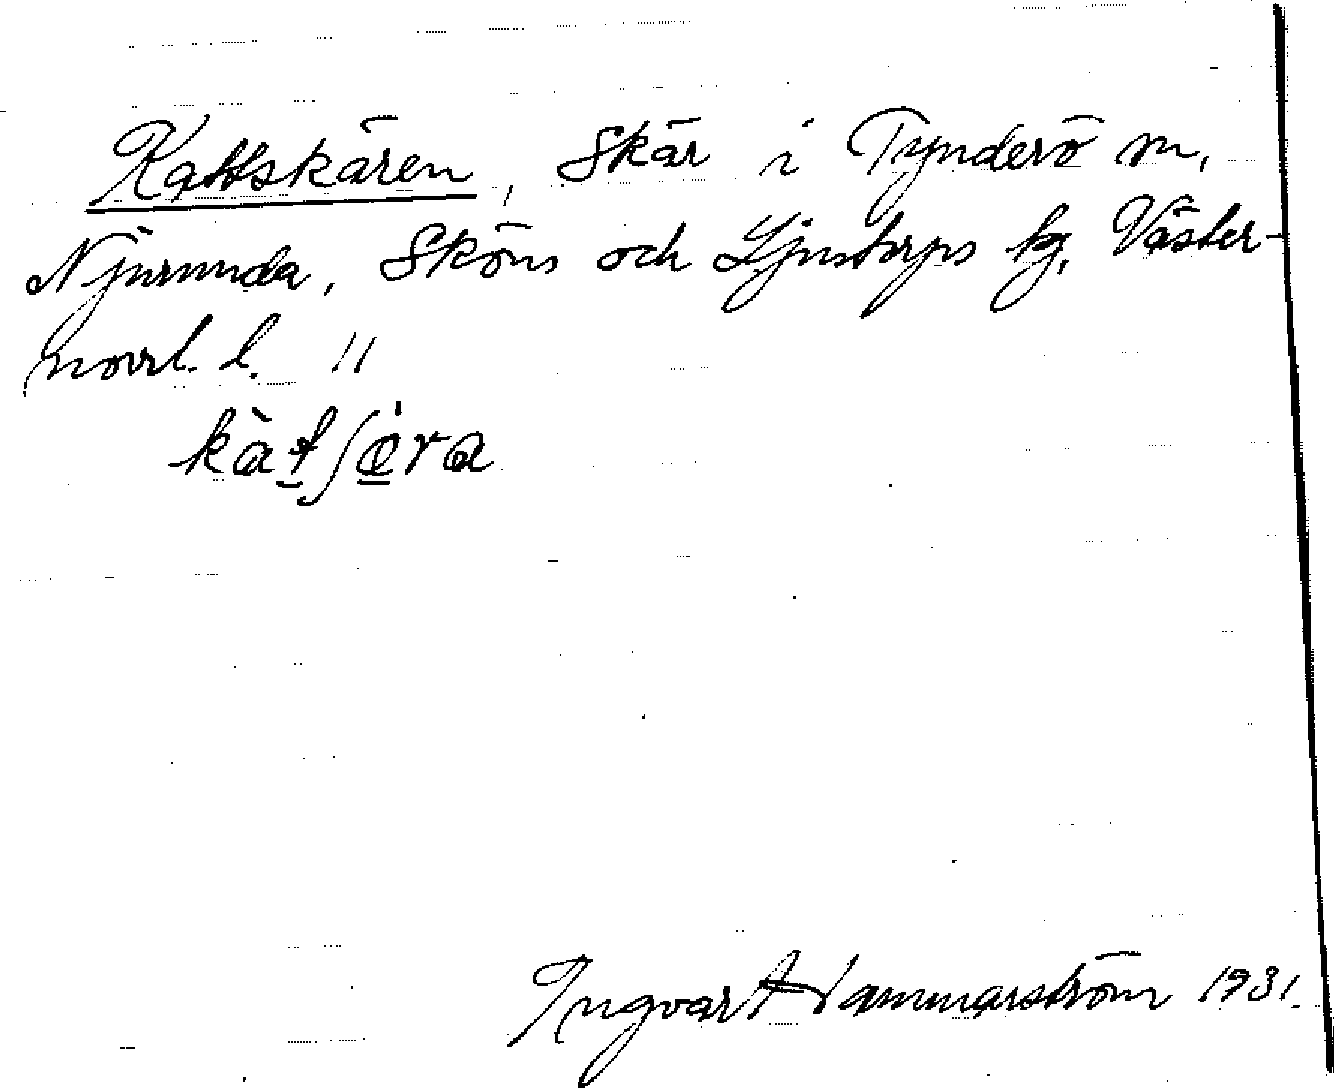 Kattskären, skär i Tynderö sn,
Njurunda, Sköns och Ljustorps tg, Väster-
norrl. l. 11
kàtʃæra
Ingvar Hammarström 1931.